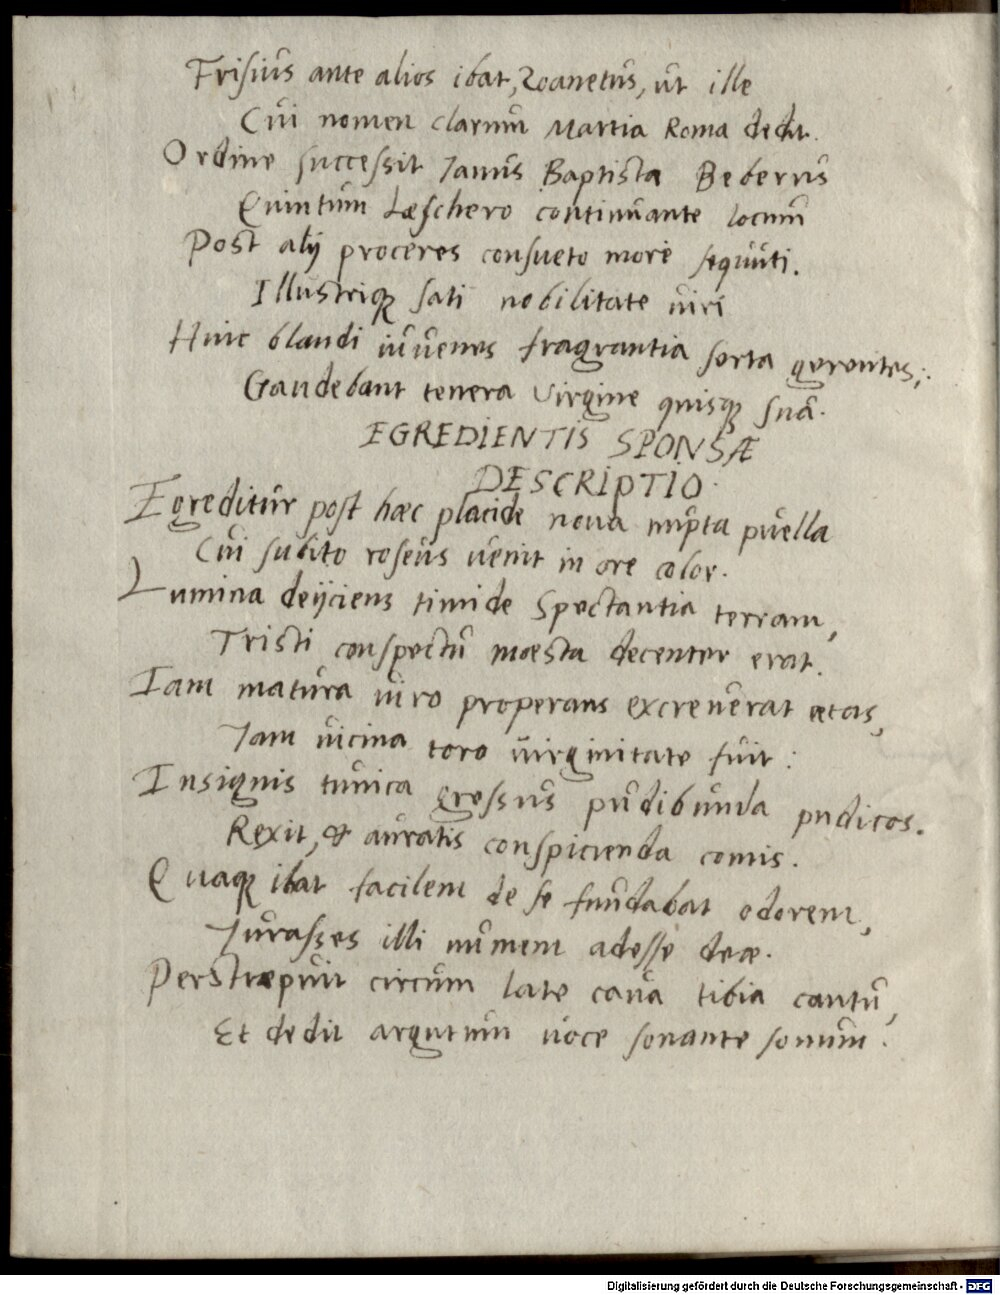 Frisius ante alios ibat, Zoanetus, ut ille
Cui nomen clarum Martia Roma dedit.
Ordine successit Janus Baptista Beberus
Quintum Læschero continuante locum
Post alij proceres consueto more sequuti.
Illustrique sati nobilitate viri
Hinc blandi iuuenes fragrantia serta gerentes;
Gaudebant tenera Virgine quisque sua.
EGREDIENTIS SPONSÆ
DESCRIPTIO.
Egreditur post hæc placide noua nupta puella
Cui subito roseus uenit in ore color.
Lumina deijciens timide Spectantia terram,
Tristi conspectu moesta decenter erat.
Iam matura uiro properans excreuerat ætas,
Jam uicina toro uirginitate fuit:
Insignis tunica gressus pudibunda pudicos.
Rexit, & auratis conspicienda comis.
Quaque ibat facilem de se fundabat odorem,
Jurasses illi numem adesse deæ.
Perstræpuit circum late caua tibia cantu,
Et dedit argutum uoce sonante sonum.
Digitalisierung gefördert durch die Deutsche Forschungsgemeinschaft - DFG